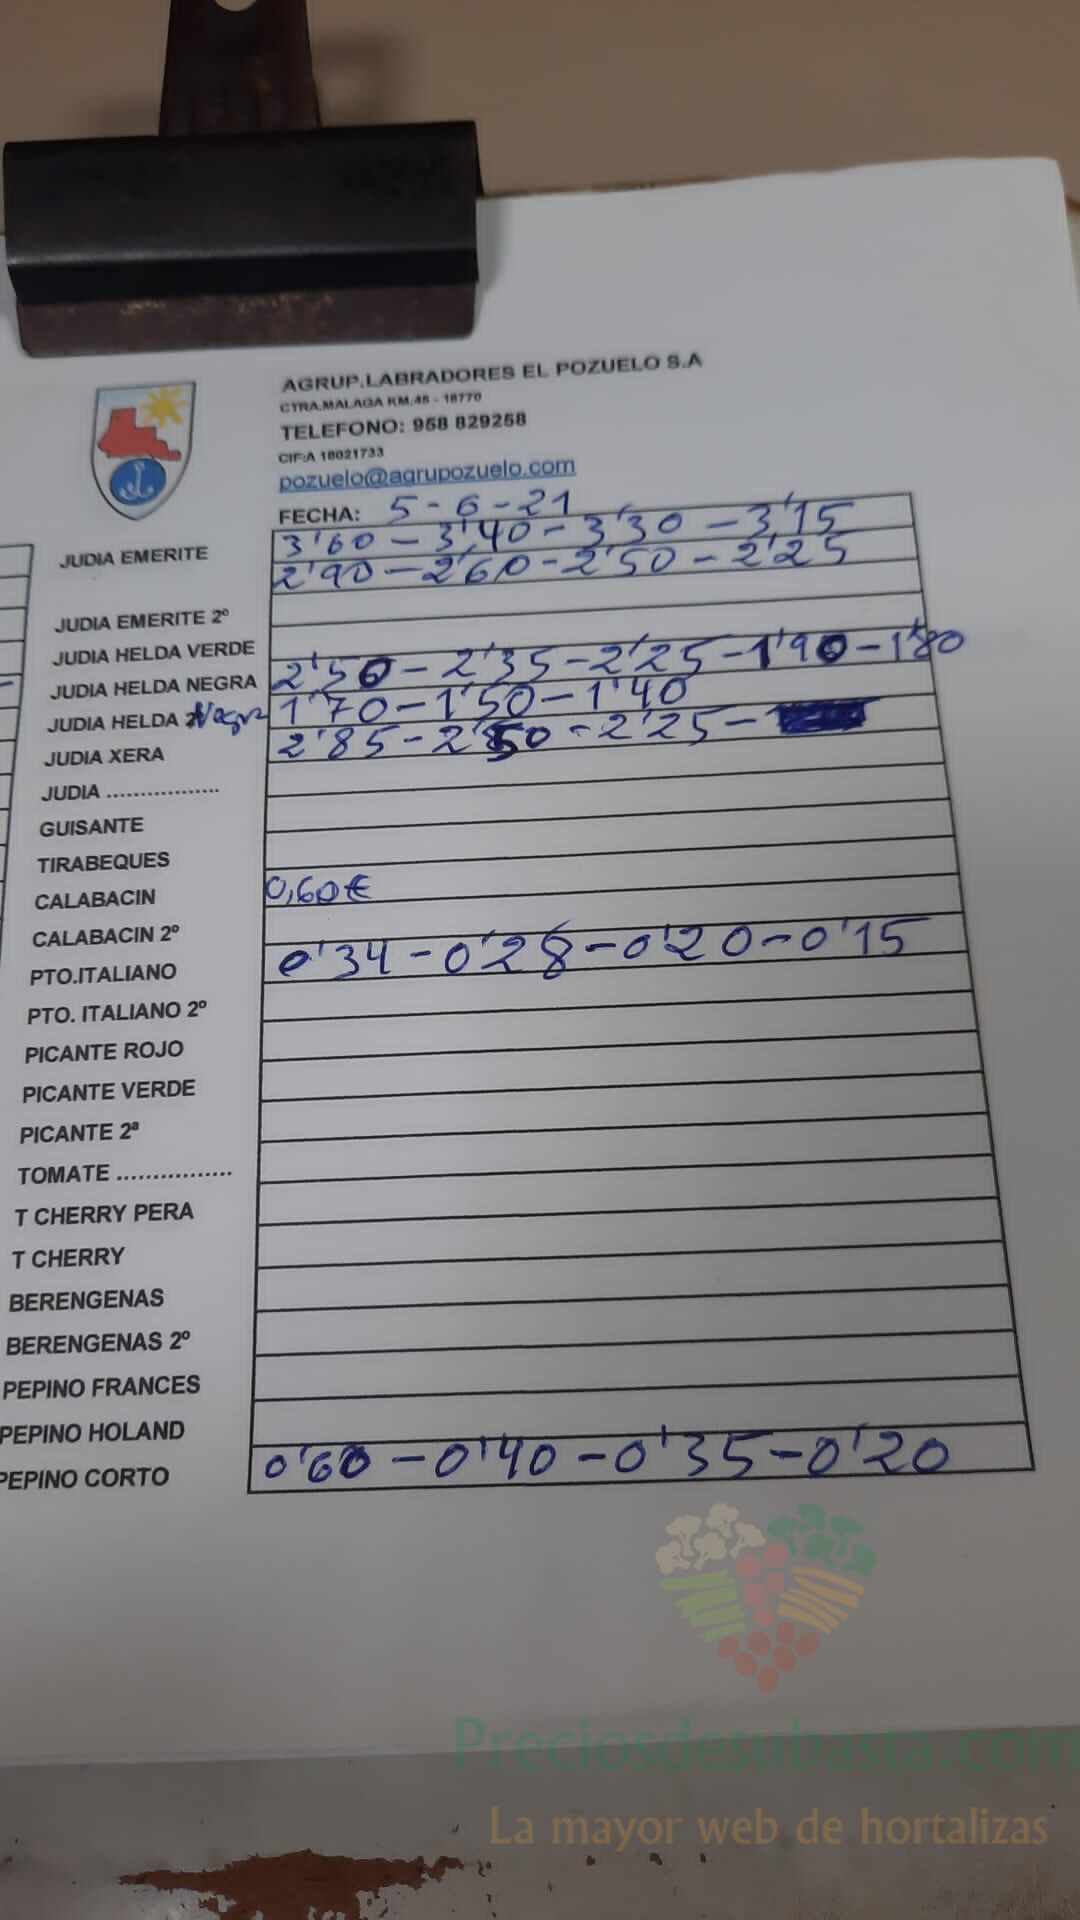 AGRUP.LABRADORES EL POZUELO S.A
CTRA.MALAGA KM.45 - 18770
TELEFONO: 958 829258
CIF:A 18021733
pozuelo@agrupozuelo.com
FECHA: 5-6-21
JUDIA EMERITE 3'60-3'40-3'30-3'15
2'90-2'60-2'50-2'25
JUDIA EMERITE 2º
JUDIA HELDA VERDE
JUDIA HELDA NEGRA 2'50-2'35-2'25-1'90-1'80
JUDIA HELDA Negra 1'70-1'50-1'40
JUDIA XERA 2'85-2'50-2'25-
JUDIA .................
GUISANTE
TIRABEQUES
CALABACIN 0,60€
CALABACIN 2º
PTO.ITALIANO 0'34-0'28-0'20-0'15
PTO. ITALIANO 2º
PICANTE ROJO
PICANTE VERDE
PICANTE 2ª
TOMATE ................
T CHERRY PERA
T CHERRY
BERENGENAS
BERENGENAS 2º
PEPINO FRANCES
PEPINO HOLAND
PEPINO CORTO 0'60-0'40-0'35-0'20
Preciosdesubasta.com
La mayor web de hortalizas